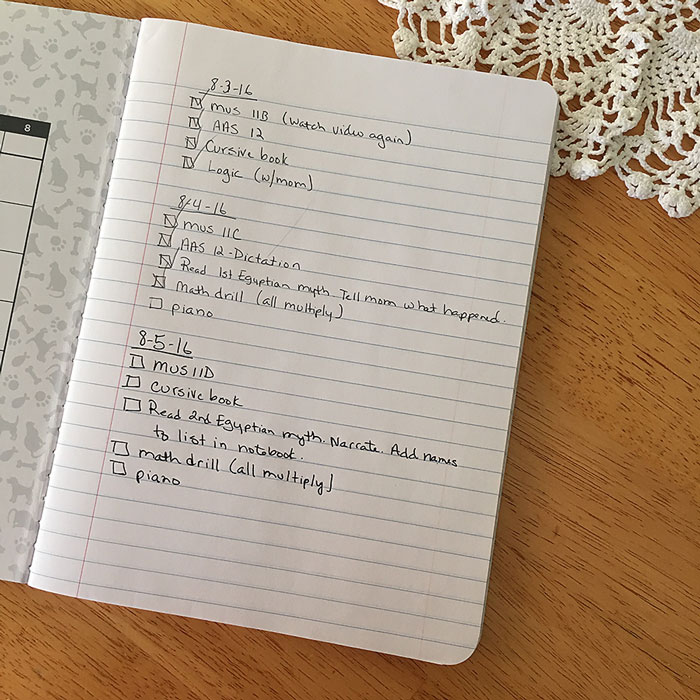 8
8-3-16
mus 11B (watch video again)
AAS 12
Cursive book
Logic (w/mom)
8-4-16
mus 11C
AAS 12-Dictation
Read 1st Egyptian myth. Tell mom what happened.
math drill (all multiply)
piano
8-5-16
mus 11D
cursive book
Read 2nd Egyptian myth. Narrate. Add names
to list in notebook.
math drill (all multiply)
piano